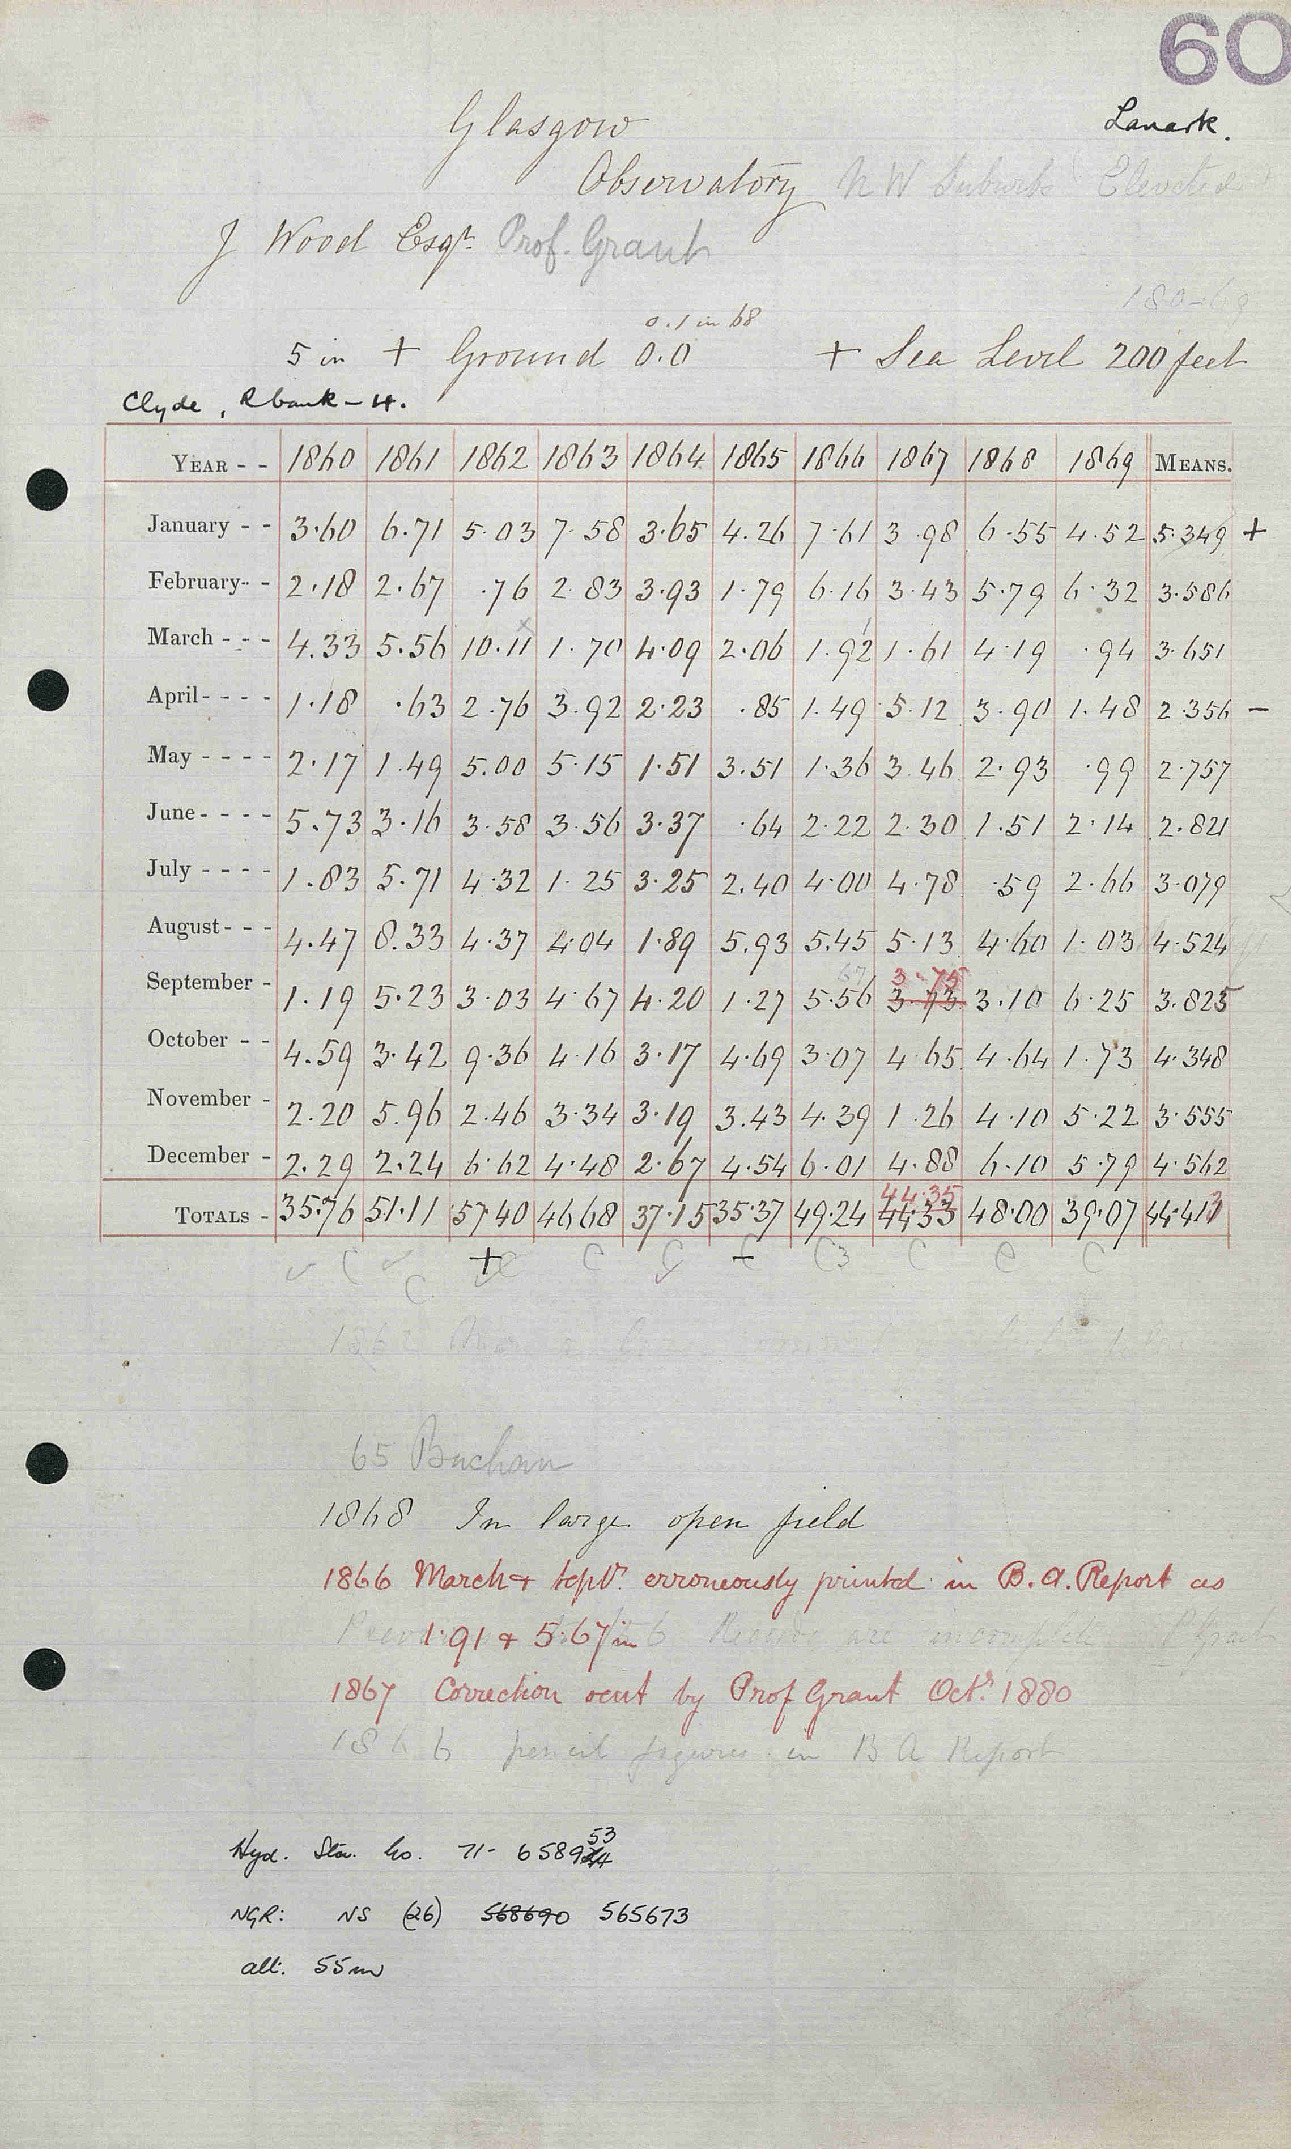 60
Lanark.
Glasgow
Observatory NW Suburbs Elevated
J Wood Esqr. Prof. Grant
180-69
0.1 in 68
5 in + Ground 0.0 + Sea Level 200 feet
Clyde, Rbank - 4.
YEAR - - 1860 1861 1862 1863 1864 1865 1866 1867 1868 1869 MEANS.
January - - 3.60 6.71 5.03 7.58 3.65 4.26 7.61 3.98 6.55 4.52 5.349 +
February- - 2.18 2.67 .76 2.83 3.93 1.79 6.16 3.43 5.79 6.32 3.586
March - - - 4.33 5.56 10.11 1.70 4.09 2.06 1.92 1.61 4.19 .94 3.651
April- - - - 1.18 .63 2.76 3.92 2.23 .85 1.49 5.12 3.90 1.48 2.356 -
May - - - - 2.17 1.49 5.00 5.15 1.51 3.51 1.36 3.46 2.93 .99 2.757
June- - - - 5.73 3.16 3.58 3.56 3.37 .64 2.22 2.30 1.51 2.14 2.821
July - - - - 1.83 5.71 4.32 1.25 3.25 2.40 4.00 4.78 .59 2.66 3.079
August- - - 4.47 8.33 4.37 4.04 1.89 5.93 5.45 5.13 4.60 1.03 4.524
67 3.75
September - 1.19 5.23 3.03 4.67 4.20 1.27 5.56 3.73 3.10 6.25 3.825
October - - 4.59 3.42 9.36 4.16 3.17 4.69 3.07 4.65 4.64 1.73 4.348
November - 2.20 5.96 2.46 3.34 3.19 3.43 4.39 1.26 4.10 5.22 3.555
December - 2.29 2.24 6.62 4.48 2.67 4.54 6.01 4.88 6.10 5.79 4.562
44.35
TOTALS - 35.76 51.11 57.40 46.68 37.15 35.37 49.24 44.33 48.00 39.07 44.413
C C + C C C - C C3 C C C
1862
65 Buchan
1868 In large open field
1866 March & Septr. erroneously printed in B.A. Report as
1.91 & 5.67 in
Records are incomplete
1867 Correction sent by Prof Grant Oct. 1880
1866 pencil figures in B A Report
53
Hyd. Stn. No. 71- 658924
NGR: NS (26) 568690 565673
alt. 55m